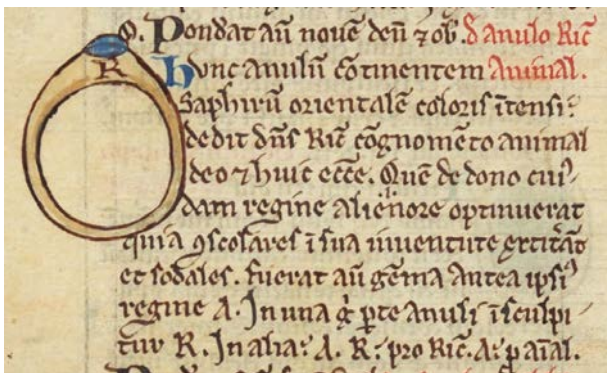 R
O. Pondat aū novē deñ ⁊ ob. D anulo Ric̄
Hunc anulū cōtinentem Animal.
Saphirū orientalē coloris ītensi:
dedit dn̄s Ric̄ cōgnomēto animal
deo ⁊ huic ecc̄e. Quē de dono cuiꝰ
dam regine Alienore optinuerat
quia ꝯscolares ī sua iuventute extitāt
et sodales. Fuerat aū gēma antea ipsiꝰ
regine A. In una g̊ ꝑte anuli īsculpi
tur R. In alia: A. R: pro Ric̄. A: p aīal.